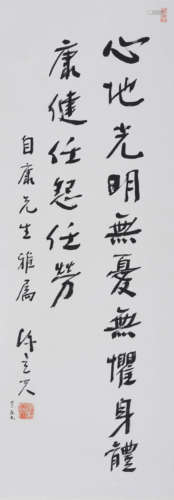 心地光明無憂無懼身體
康健任怨任勞
自康先生雅屬
陳立夫